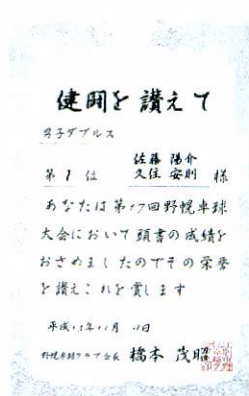 健闘を讃えて
男子ダブルス
佐藤 陽介
第1位 久住 安則 様
あなたは第17回野幌卓球
大会において頭書の成績を
おさめましたのでその栄誉
を讃えこれを賞します
平成 年 月 日
野幌卓球クラブ会長 橋本 茂昭